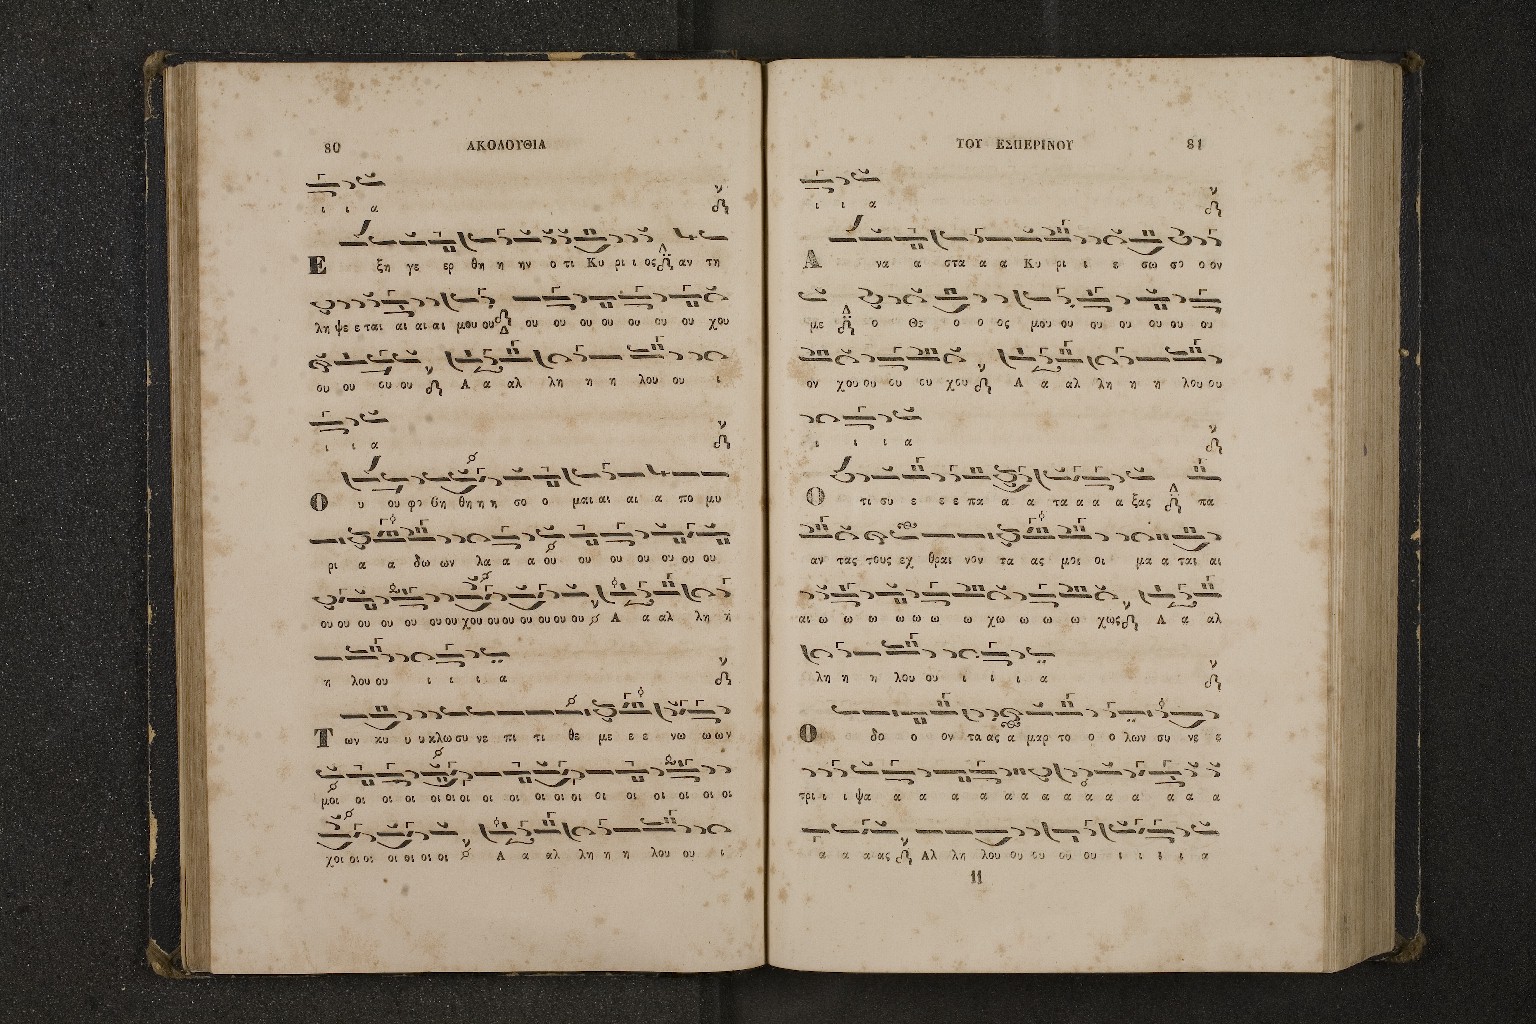 80 ΑΚΟΛΟΥΘΙΑ
ι ι α
Ε ξη γε ερ θη η ην ο τι Κυ ρι ι ος αν τη
λη ψε ε ται αι αι αι μου ου ου ου ου ου ου ου ου χου
ου ου ου ου Α α αλ λη η η λου ου ι
ι ι α
Ο υ ου φο βη θη η η σο ο μαι αι αι α πο μυ
ρι α α δω ων λα α α ου ου ου ου ου ου ου
ου ου ου ου ου ου ου χου ου ου ου ου ου ου Α α αλ λη η
η λου ου ι ι ι α
Τ ων κυ υ υ κλω συ νε πι τι θε με ε ε νω ω ων
μοι οι οι οι οι οι οι οι οι οι οι οι οι οι οι οι οι οι
χοι οι οι οι οι οι οι Α α αλ λη η η λου ου ι
ΤΟΥ ΕΣΠΕΡΙΝΟΥ 81
ι ι α
Α να α στα α α Κυ ρι ι ε σω σο ο ον
με ο Θε ο ο ος μου ου ου ου ου ου ου
ον χου ου ου ου χου Α α αλ λη η η λου ου
ι ι ι α
Ο τι συ ε ε ε πα α α τα α α α ξας πα
αν τας τους εχ θραι νον τα ας μοι οι μα α ται αι
αι ω ω ω ω ω ω ω χω ω ω ω χως Α α αλ
λη η η λου ου ι ι ι α
Ο δο ο ον τα ας α μαρ το ο ο λων συ νε ε
τρι ι ι ψα α α α α α α α α α α α α α
α α α ας Αλ λη λου ου ου ου ου ι ι ι ι α
11